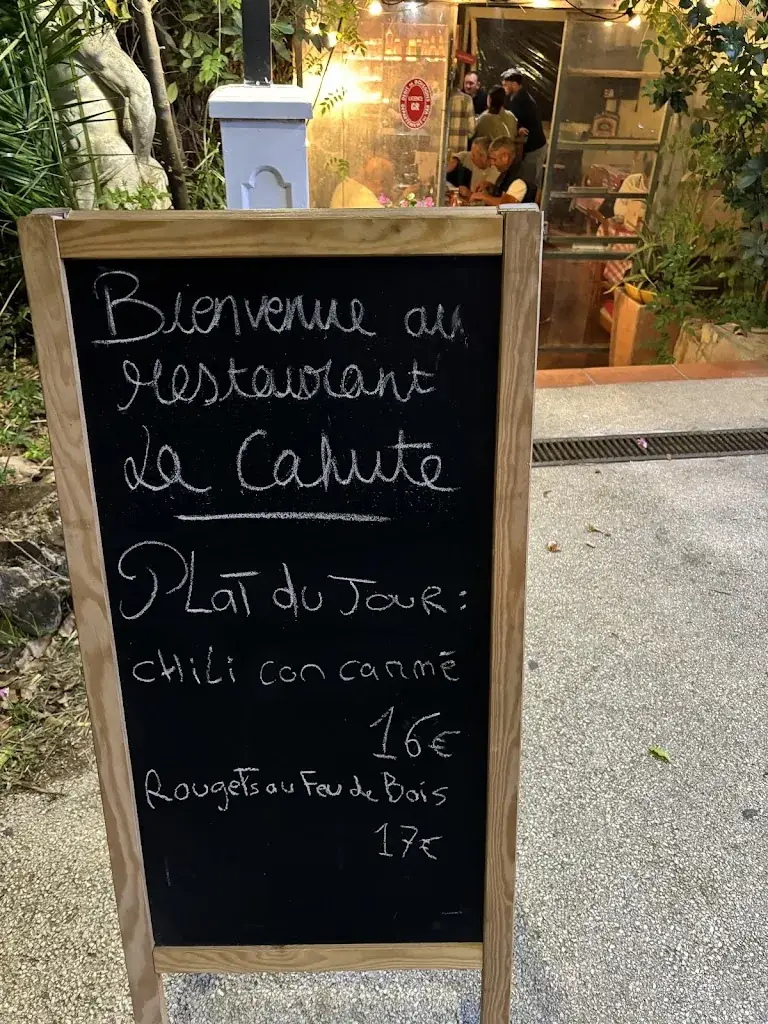 Bienvenue au
restaurant
La Cahute
PLaT du JouR :
cHiLi con carmé
16€
RougeTs au Feu de Bois
17€